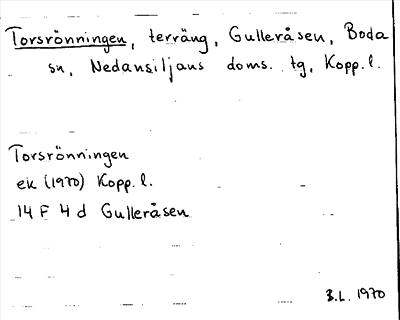 Torsrönningen, terräng, Gulleråsen, Boda
sn, Nedansiljans doms. tg, Kopp. l.
Torsrönningen
ek (1970) Kopp. l.
14 F 4 d Gulleråsen
B.L. 1970